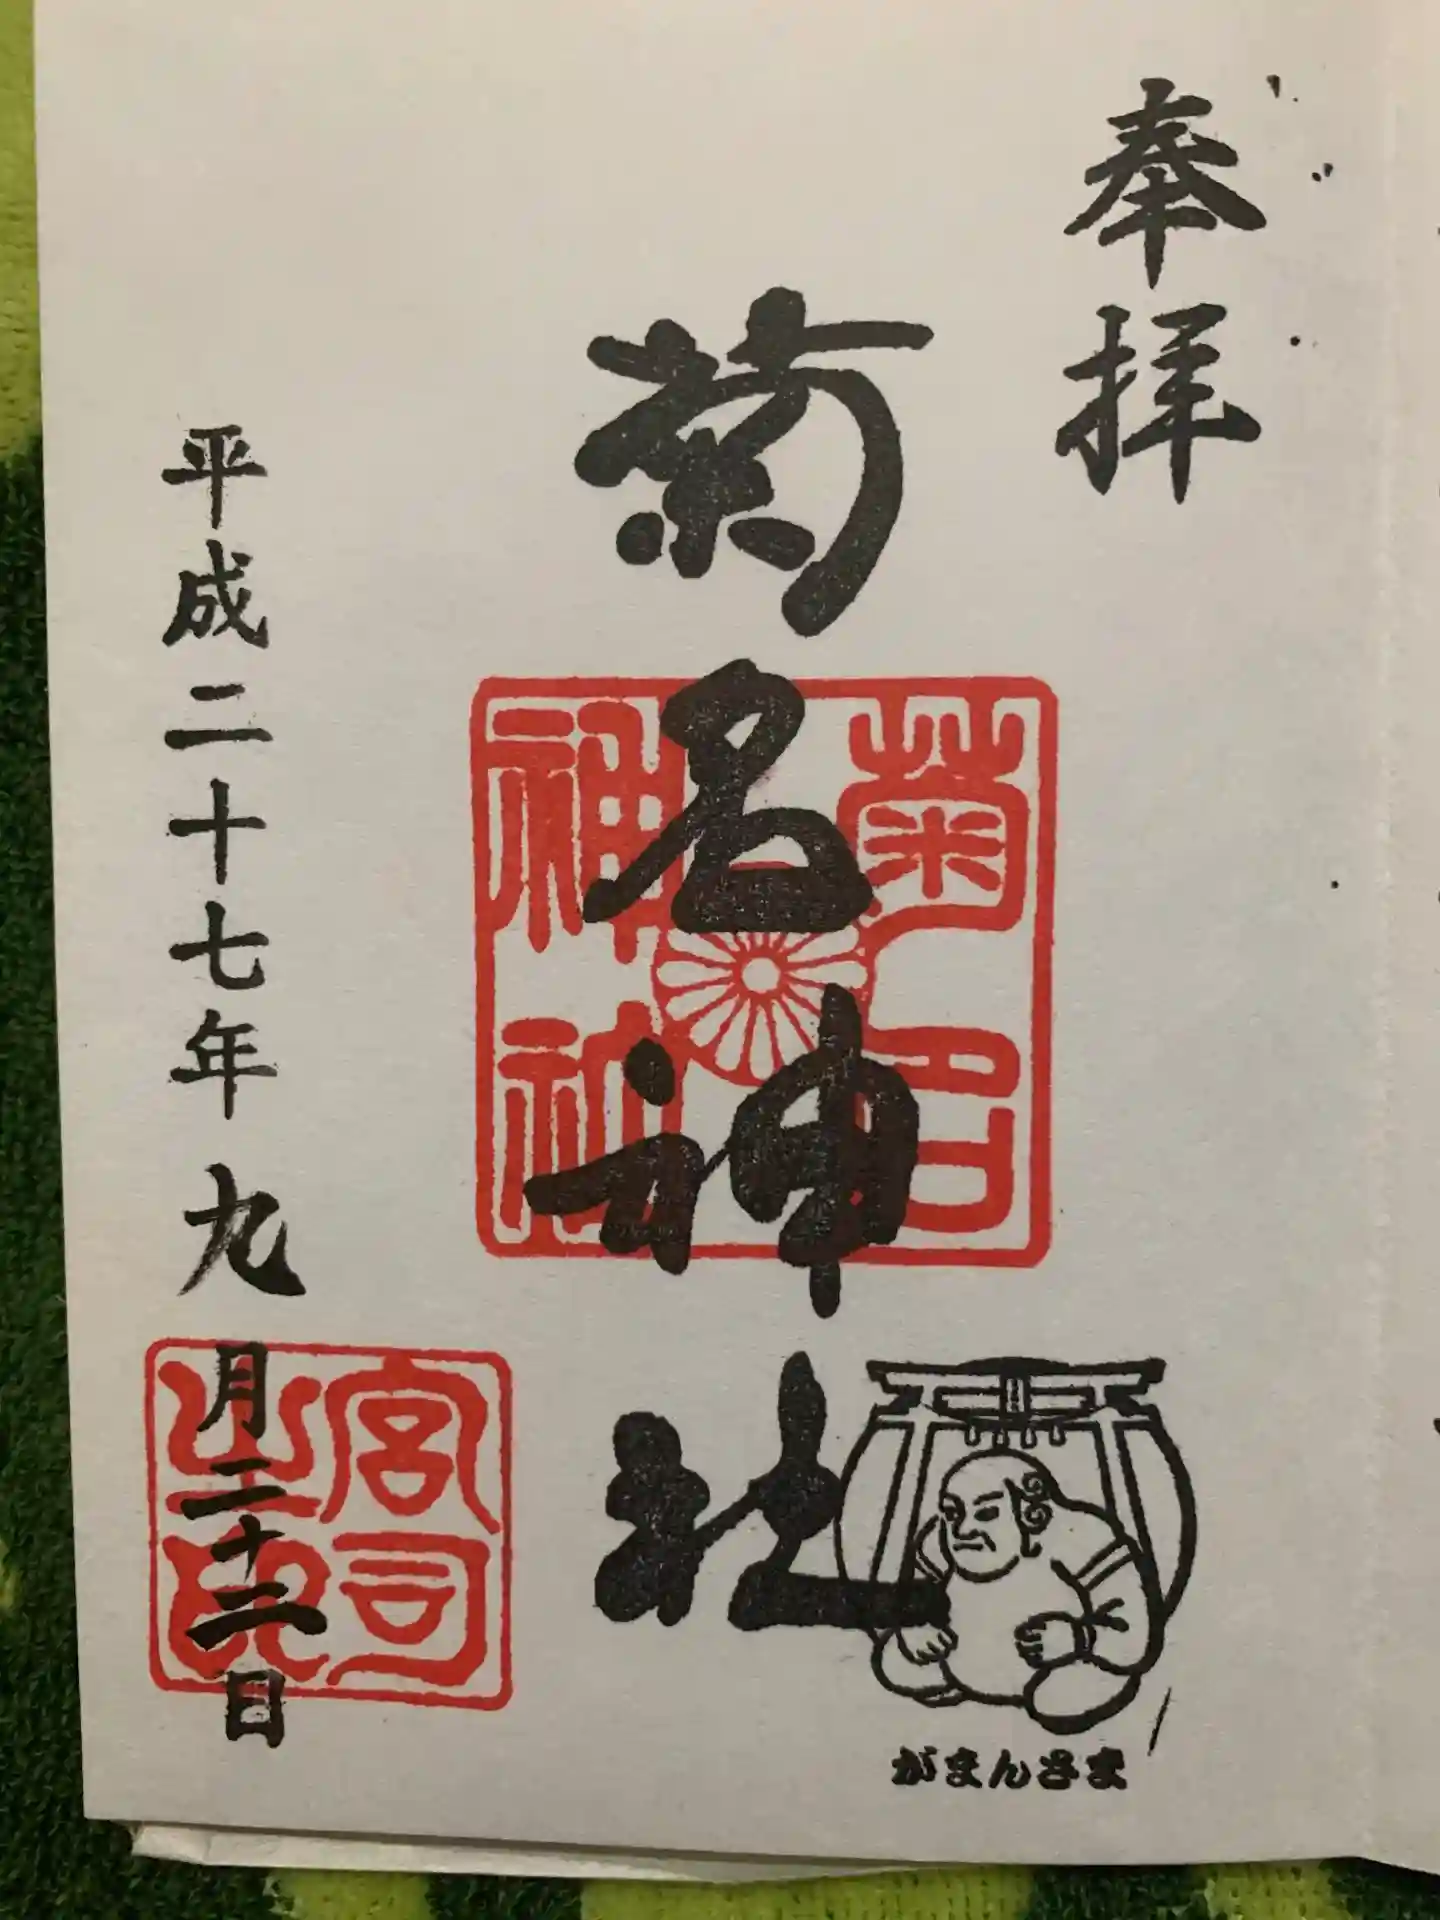 奉拝
菊名神社
菊名
神社
がまんさま
平成二十七年九月二十二日
宮司
之印